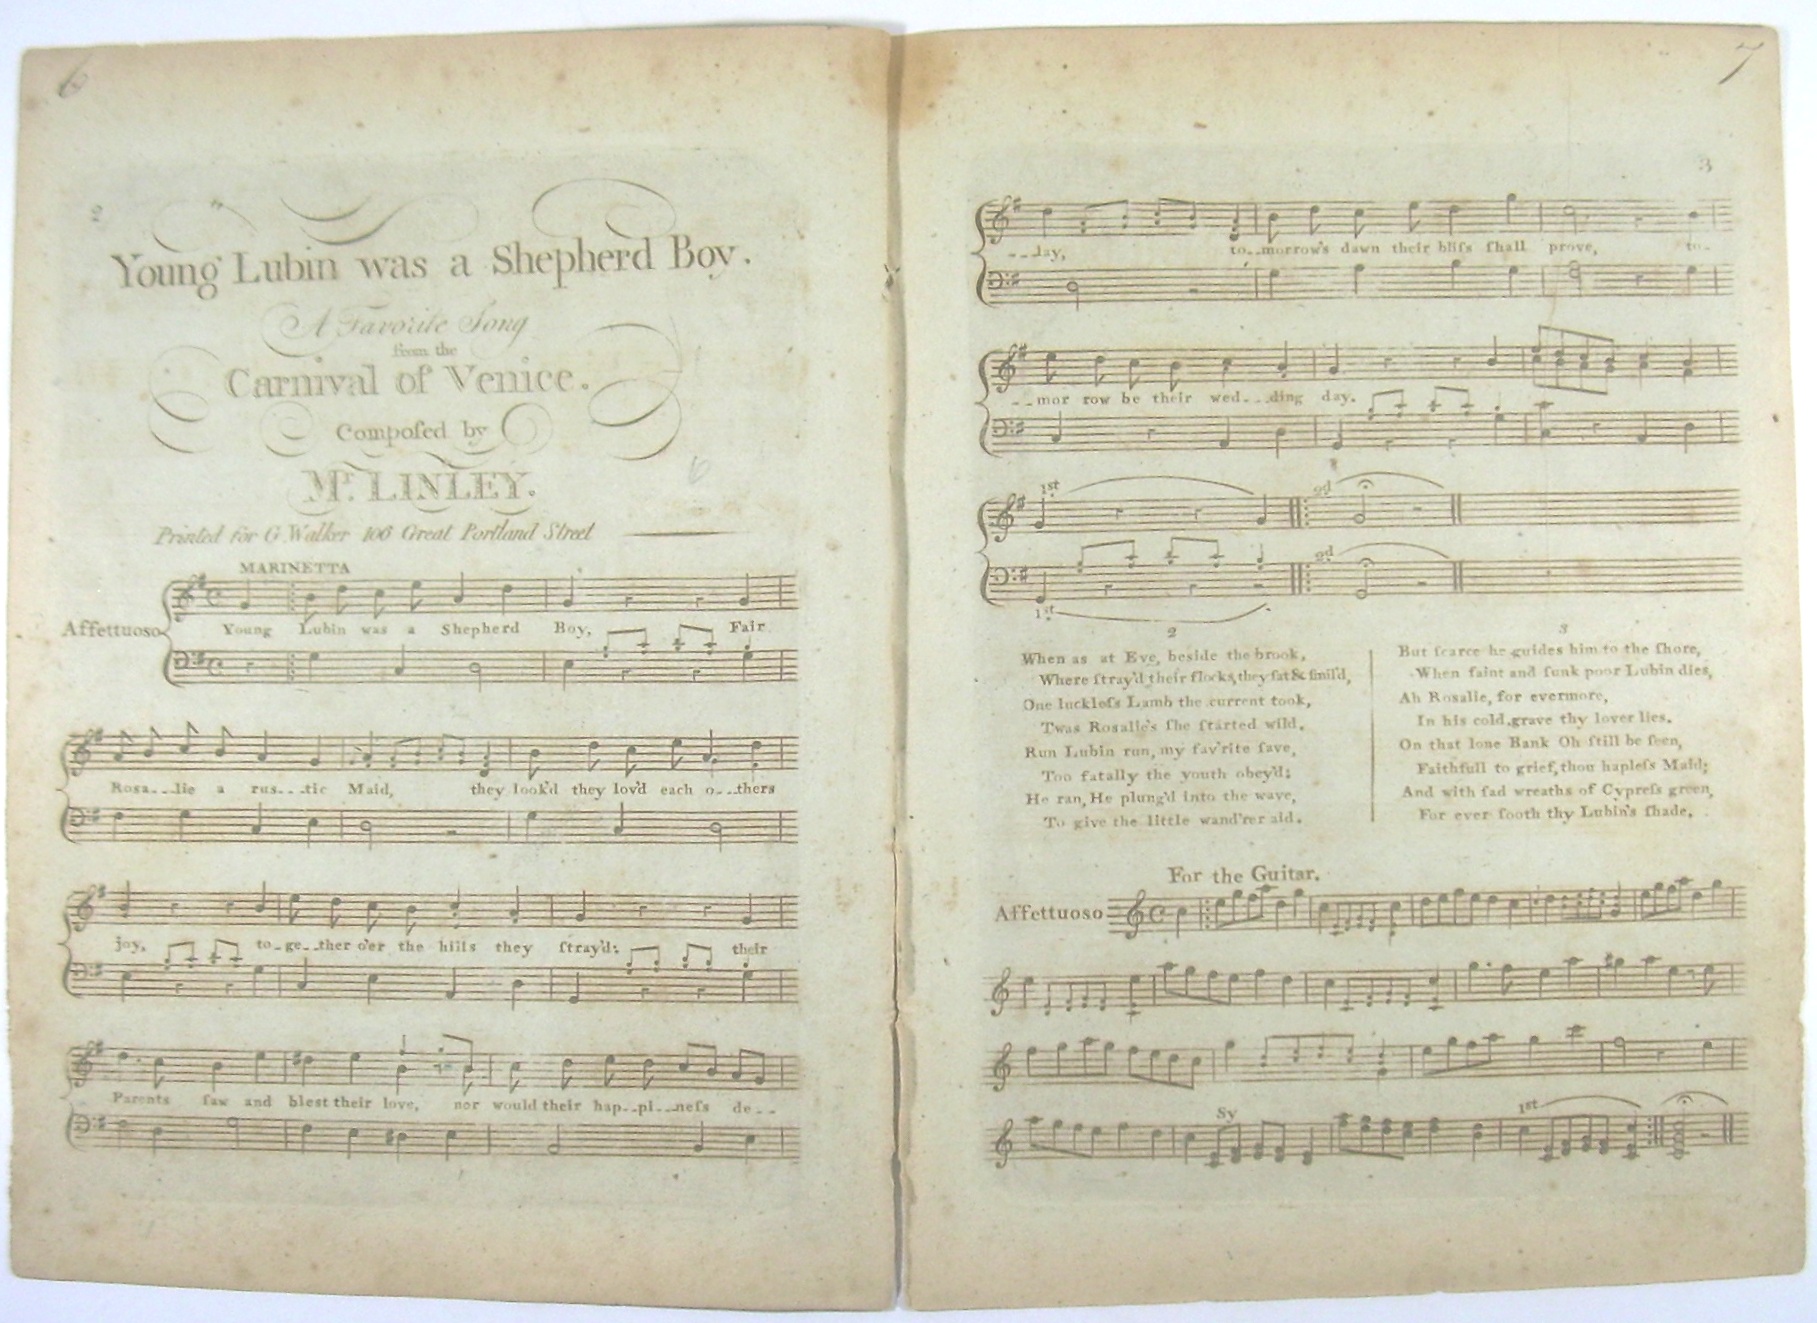 6
2
Young Lubin was a Shepherd Boy.
A Favorite Song
from the
Carnival of Venice.
Compoſed by
Mr. LINLEY.
Printed for G. Walker 106 Great Portland Street
MARINETTA
Affettuoso
Young Lubin was a Shepherd Boy, Fair
Rosa---lie a rus---tic Maid, they look'd they lov'd each o---thers
joy, to-ge--ther o'er the hills they ſtray'd; their
Parents ſaw and bleſt their love, nor would their hap--pi--neſs de--
7
3
---lay, to--morrow's dawn their bliſs ſhall prove, to-
--mor row be their wed---ding day.
1st 2d
2d
1st
2
When as at Eve, beside the brook,
Where ſtray'd their flocks, they ſat & ſmil'd,
One luckleſs Lamb the current took,
Twas Rosalie's ſhe ſtarted wild.
Run Lubin run, my fav'rite ſave,
Too fatally the youth obey'd;
He ran, He plung'd into the wave,
To give the little wand'rer aid.
3
But ſcarce he guides him to the ſhore,
When faint and ſunk poor Lubin dies,
Ah Rosalie, for evermore,
In his cold grave thy lover lies.
On that lone Bank Oh ſtill be ſeen,
Faithfull to grief, thou hapleſs Maid;
And with ſad wreaths of Cypreſs green,
For ever ſooth thy Lubin's ſhade.
For the Guitar.
Affettuoso
Sy 1st